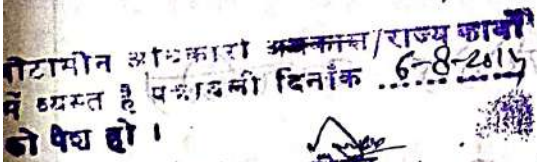 पीटासीन अधिकारी अवकाश/राज्य कार्यों
में व्यस्त है पत्रावली दिनाँक 6-8-2014
को पेश हो ।